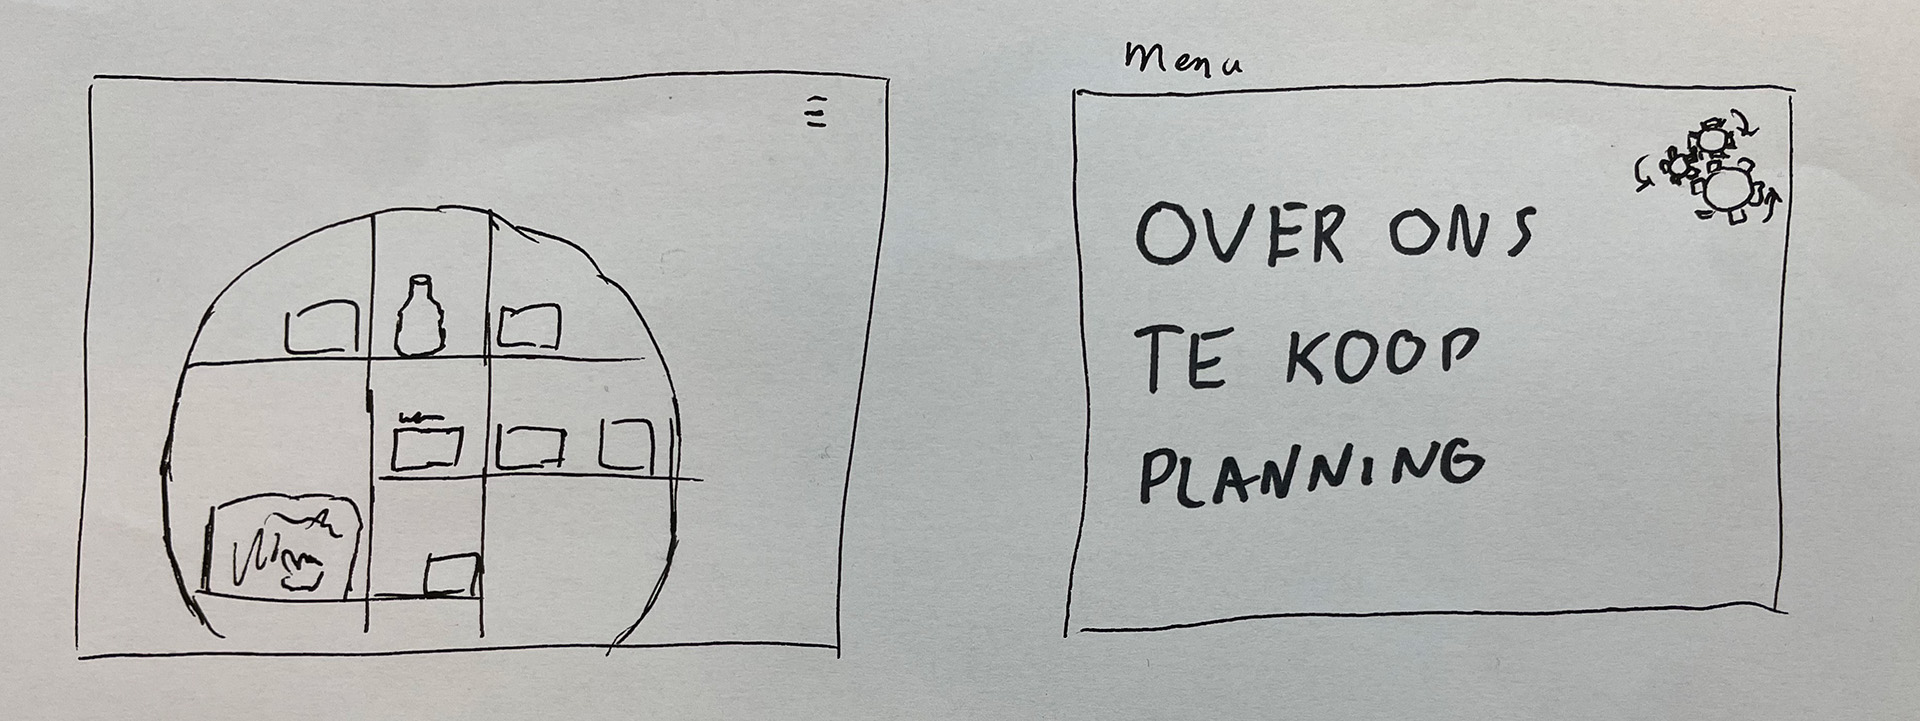 Menu
OVER ONS
TE KOOP
PLANNING